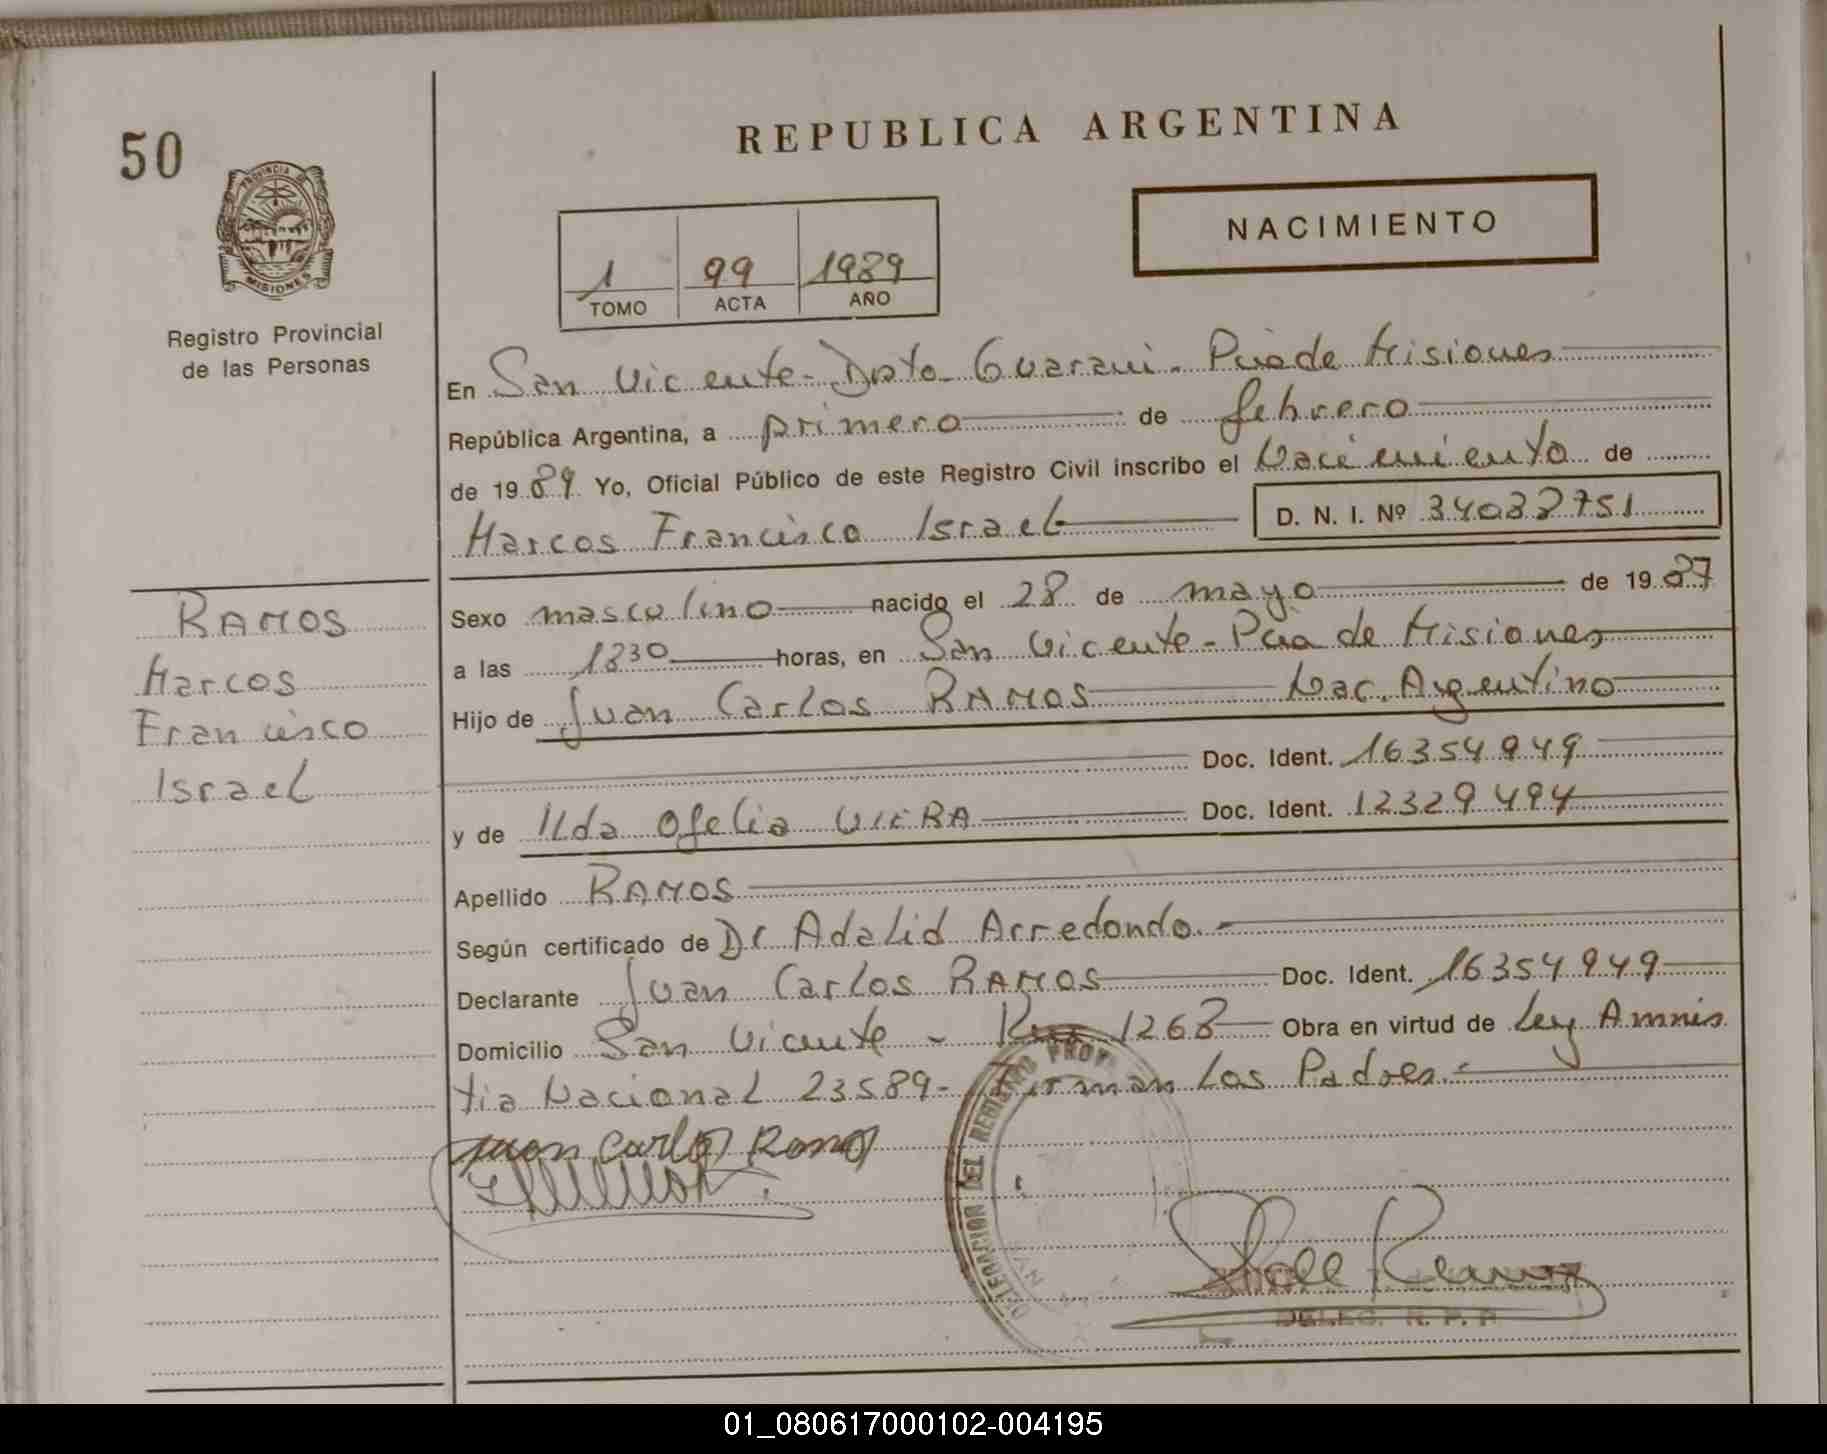 50
PROVINCIA DE
MISIONES
Registro Provincial
de las Personas
REPUBLICA ARGENTINA
NACIMIENTO
1 99 1989
TOMO ACTA AÑO
En San Vicente - Dpto Guarani - Pcia de Misiones
República Argentina, a primero de febrero
de 1989 Yo, Oficial Público de este Registro Civil inscribo el Nacimiento de
Marcos Francisco Israel D. N. I. Nº 34032751
Sexo masculino nacido el 28 de mayo de 1987
a las 1830 horas, en San Vicente - Pcia de Misiones
Hijo de Juan Carlos RAMOS Nac. Argentino
Doc. Ident. 16354949
y de Ilda Ofelia VIERA Doc. Ident. 12329494
Apellido RAMOS
Según certificado de Dr Adalid Arredondo.-
Declarante Juan Carlos RAMOS Doc. Ident. 16354949
Domicilio San Vicente - 1268 Obra en virtud de Ley Amnis
tia Nacional 23589- Firman Los Padres.-
Juan Carlos Ramos
RAMOS
Marcos
Francisco
Israel
DELEGACION DEL REGISTRO PROV
DELEG. R. P. P.
01_080617000102-004195